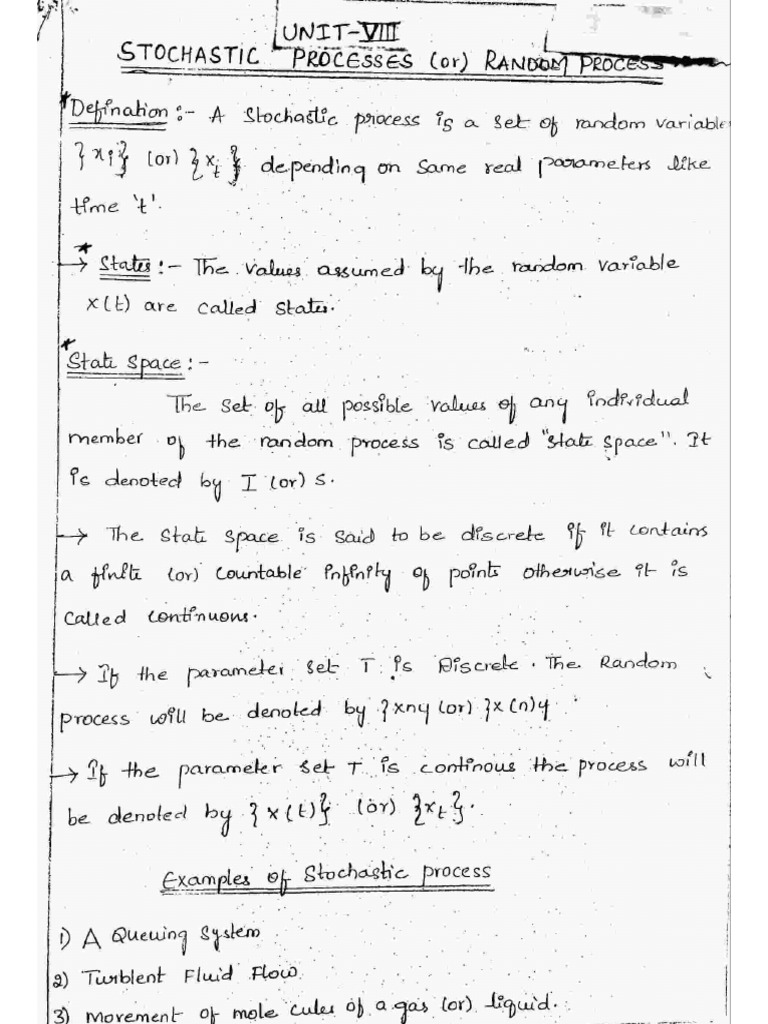 UNIT-VIII
STOCHASTIC PROCESSES (or) RANDOM PROCESS
* Defination :- A Stochastic process is a set of random variable
{xi} (or) {xt} depending on same real parameters like
time 't'.
* → States :- The values assumed by the random variable
x(t) are called States.
* State Space :-
The set of all possible values of any individual
member of the random process is called "state space". It
is denoted by I (or) S.
→ The State Space is said to be discrete if it contains
a finite (or) Countable infinity of points otherwise it is
called continuous.
→ If the parameter set T is Discrete. The Random
process will be denoted by {xny (or) {x(n)y
→ If the parameter set T is continous the process will
be denoted by {x(t)} (or) {xt}.
Examples of Stochastic process
1) A Queuing System
2) Turblent Fluid Flow
3) Movement of mole cules of a gas (or) liquid.